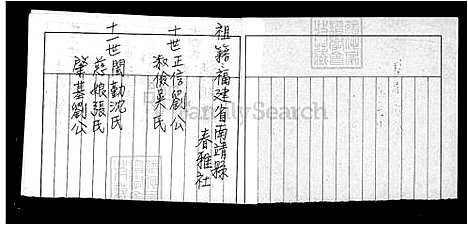 祖籍福建省南靖縣
春雅社
十世正信劉公
淑儉吳氏
十一世閨勤沈氏
慈娘張氏
肇基劉公
FamilySearch